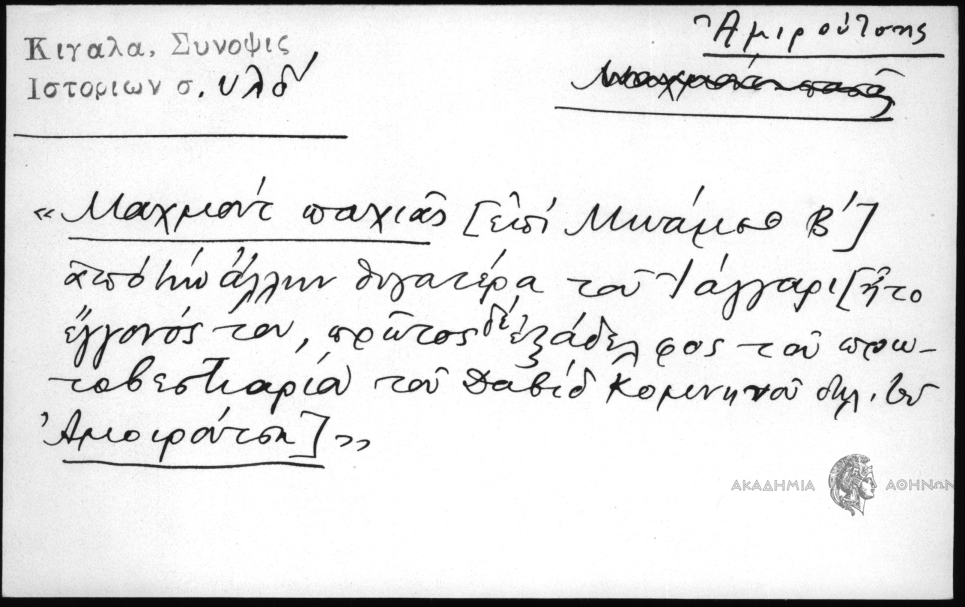 Κιγαλα, Συνοψις
Ιστοριων σ. υλδ΄
Ἀμιρούτσης
«Μαχμοὺτ παχιᾶς [ἐπὶ Μωάμεθ Β΄]
ἀπὸ τὴν ἄλλην θυγατέρα τοῦ Ἰάγγαρι [ἦτο
ἔγγονός του, πρῶτος δὲ ἐξάδελφος τοῦ πρω-
τοβεστιαρία τοῦ Δαβὶδ Κομνηνοῦ δηλ. τοῦ
Ἀμοιρούτση]»
ΑΚΑΔΗΜΙΑ ΑΘΗΝΩΝ